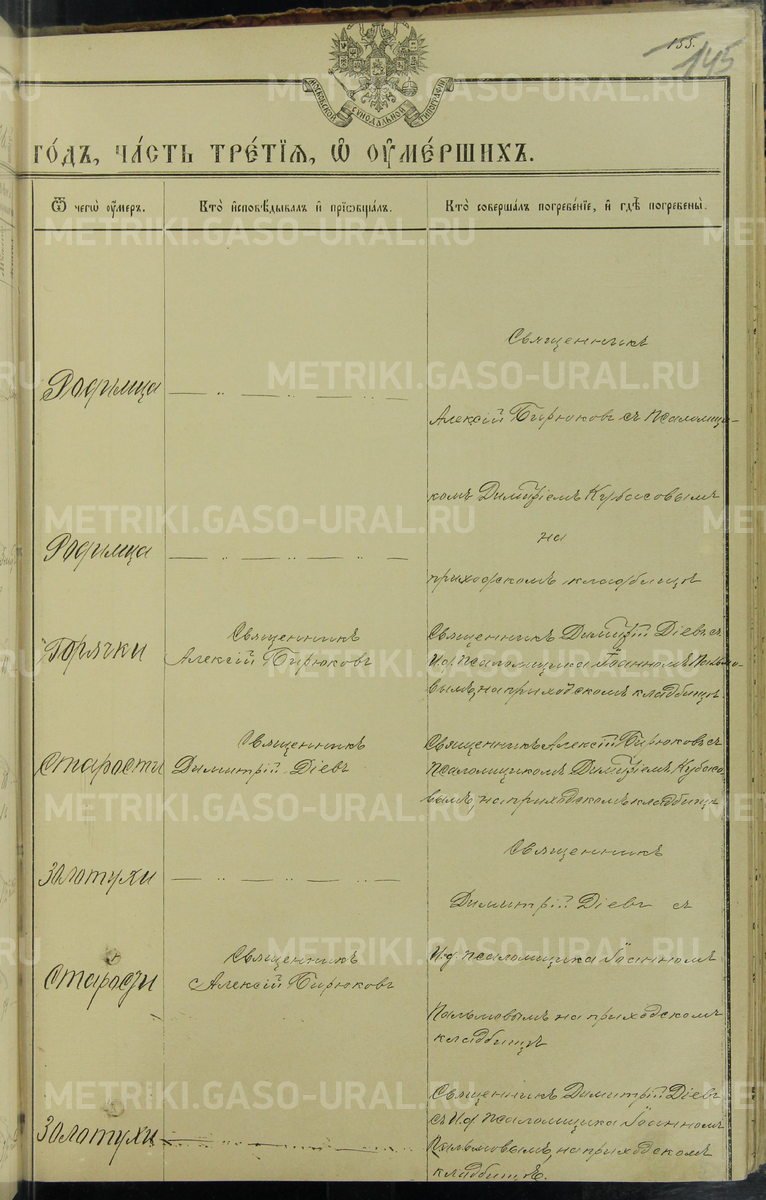 155.
145
МОСКОВСКОЙ СѴНОДАЛЬНОЙ ТИПОГРАФІИ
ГО́ДЪ, ЧА́СТЬ ТРЕ́ТІЯ, Ѡ҆ ОУ҆МЕ́РШИХЪ.
Ѿ чегѡ̀ оу҆́меръ.
Кто̀ и҆сповѣ́дывалъ и҆ прїѡбща́лъ.
Кто̀ соверша́лъ погребе́нїе, и҆ гдѣ̀ погребены̀.
Родимца
Священникъ
Алексій Бирюковъ съ псаломщи-
комъ Димитріемъ Кубасовымъ
на
приходскомъ кладбищѣ
Родимца
Горячки
Священникъ
Алексій Бирюковъ
Священникъ Димитрій Діевъ съ
И.д. псаломщика Іоанномъ Пальмо-
вымъ, на приходскомъ кладбищѣ
Старости
Священникъ
Димитрій Діевъ
Священникъ Алексій Бирюковъ съ
псаломщикомъ Димитріемъ Кубасо-
вымъ, на приходскомъ кладбищѣ
Золотухи
Священникъ
Димитрій Діевъ съ
И.д. псаломщика Іоанномъ
Пальмовымъ на приходскомъ
кладбищѣ
Старости
Священникъ
Алексій Бирюковъ
Золотухи
Священникъ Димитрій Діевъ
съ И.д. псаломщика Іоанномъ
Пальмовымъ, на приходскомъ
кладбищѣ.
METRIKI.GASO-URAL.RU